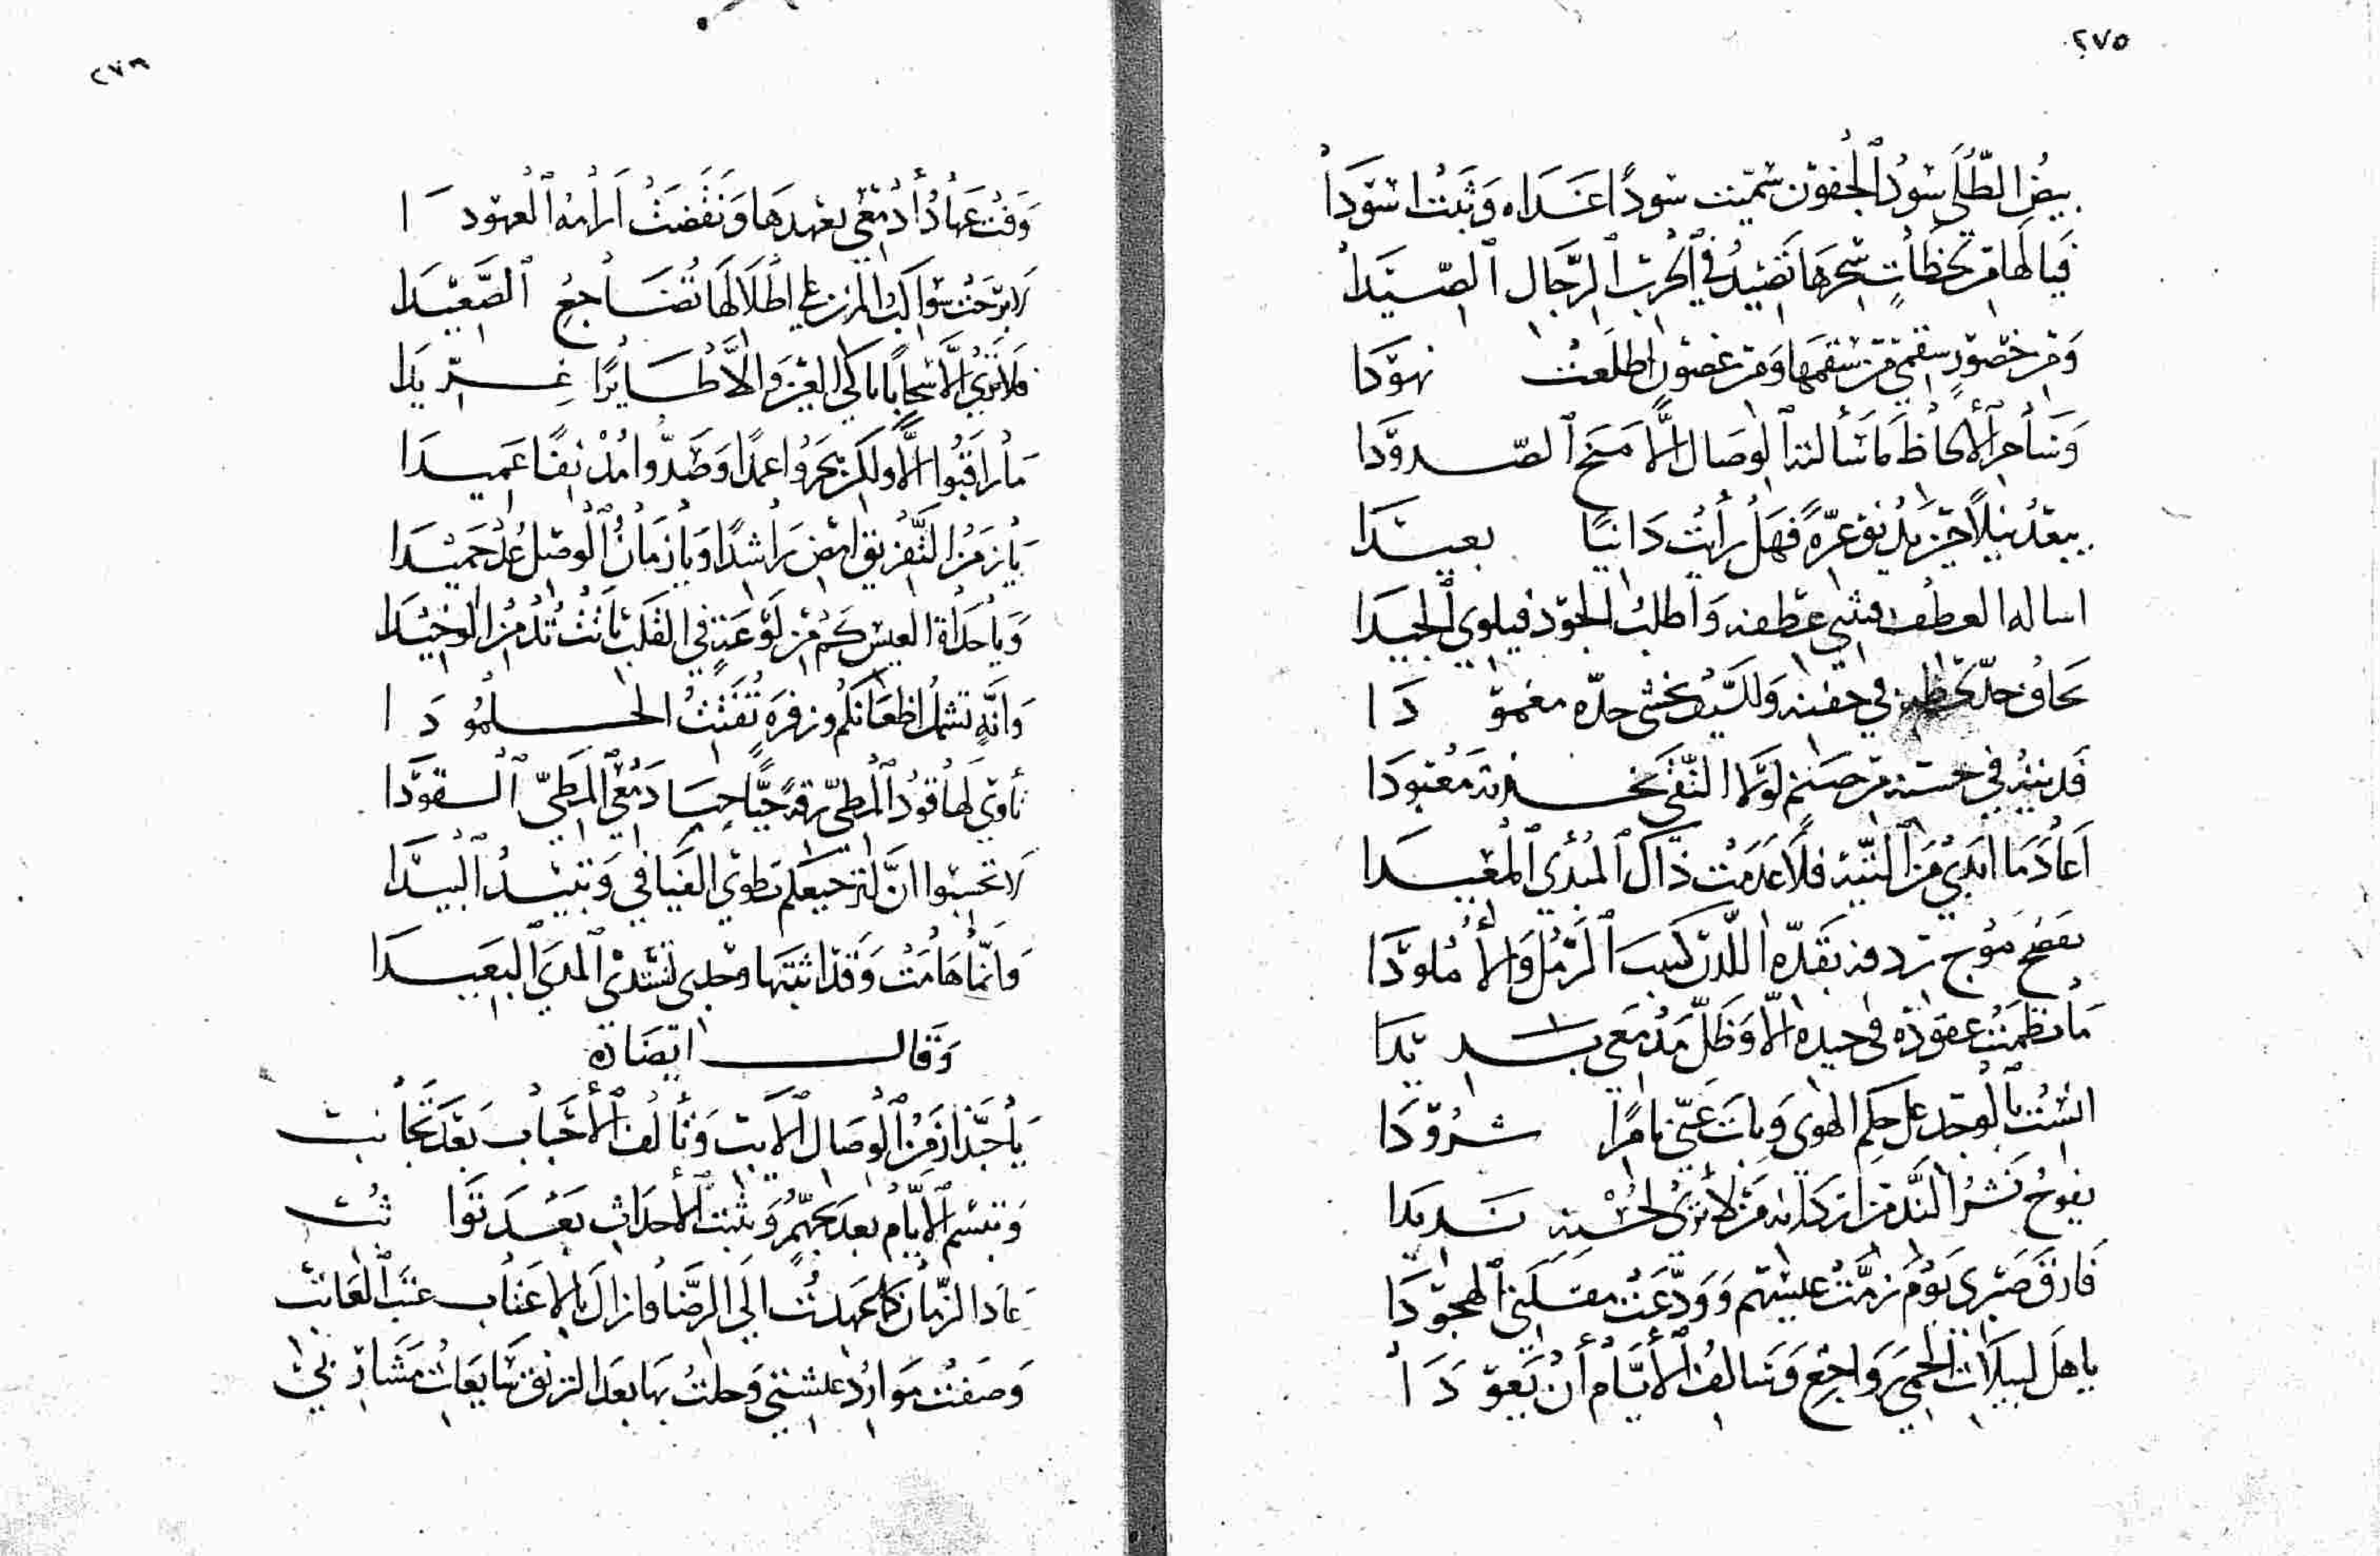 ٢٧٥
بيضُ الطُّلَى سُودُ ٱلجُفون سُمّيت سُودًا غَدَاه وَثَبَتْ اسْوَدَا
فَيا لَهَا مِن لَحظَاتٍ سِحْرهَا تَصْيدُ في ٱلحُرب ٱلرَّجَالِ ٱلصّيَدَا
وَمن خصُورٍ سقمي من سُقمهَا وَمن غصُونٍ اطلَعَتْ نهوُدَا
وَسَاحر ٱلألحَاظ مَا سَألت ٱلوصَال إلَّا مَنح ٱلصّدودَا
يبعدُ نيلًا حين يدنو عزّةً فَهَل رَأيتَ دَانيًا بعيدَا
اساله العطف فيثني عطفه وَاطلبُ الجودَ فيلوي ٱلجيدَا
يخافُ حدّ لحظه في جفنه وَالسّيفُ يخشى حدّه مغمودَا
فَديتهُ في حسنه من صَنَمٍ لَولَا التّقى تخذته مَعْبودَا
اَعادَ مَا ابْدَي مِنَ ٱلتّيه فلَا عَدمتُ ذَاكَ ٱلمُبْدي ٱلمُعْيدَا
يفضحُ مَوْج ردفه بقَدّه اللّدن كثيب ٱلرّمْل وَالأُمْلودَا
مَا نظمَتْ عقودَه في جيده إلّا وَظَلَّ مَدْمَعي بديدَا
انسْتُ بٱلوجد على حكم الهوى وَباتَ عنّي نافرًا شرُودَا
يفوحُ نَشْرُ النَّد من اردانه مَن لَا نرى لحُسْنه نديدَا
فَارقَ صَبْري يَوْمَ زمَّتْ عيسُهم وَوَدَّعَتْ مقلَتي ٱلهجُودَا
ياهَل لُييلَات ٱلحمى رَوَاجعٌ وَسَالفُ ٱلأيَّام أَنْ تَعودَا
٢٧٦
وَفتْ عهَادُ أَدمُعي بعهدهَا وَنَقَضَتْ اَرامهُ ٱلعُهودَا
لَا برَحتْ سَواكبُ المزن على اطْلَالهَا تُضَاجعُ ٱلصَّعيدَا
فلَا تَرى إلَّا سَحابًا باكيَ العين وَإلَّا طَايرًا غرّيدَا
مَا رَاقبُوا إلًّا وَلكن هجَرُوا عمدًا وَصَدُّوا مُدْنفًا عَميدَا
يَا زمَنَ التَّفْريق امض رَاشدًا وَيا زمَانَ ٱلوصل عُدْ حَميدَا
وَياحدَاة العيس كمْ من لَوْعَةٍ في القلب باتَتْ تُدْمن الوخيدَا
وَانّهٍ تشملُ اظعَانكُم وَزفرةٍ تُفَتّتُ الجلمُودَا
تأوي لَهَا قودُ ٱلمُطيّ رقةً حيًّا حيَا دَمْعي ٱلمَطيَّ ٱلقودَا
لَا تحسَبوا انَّ لَهَا حبَّكم تطوي الفَيَافي وَتبيْدُ ٱلبيدَا
وَانّما هَامَتْ وَقدْ اثبتهَا وجدي تَسْتَدْني ٱلمدَى ٱلبَعيدَا
وَقَال ايضَاه
يَا حَبَّذا زَمنُ ٱلوصَال ٱلآيب وَتألُف ٱلأحْبَاب بَعْدَ تَجانب
وَتبسّم ٱلأيّام بعد تجهّمٍ وَتثبّت ٱلأحدَاث بَعْدَ تَواثب
عَادَ الزّمانُ كَما عَهدتُ الى الرّضَا فازالَ بالإعتَاب عتبَ ٱلعَاتب
وَصَفَتْ مَوَاردُ عيشتي وَحلَتْ بها بعد الرنق سَايغاتُ مَشَاربي